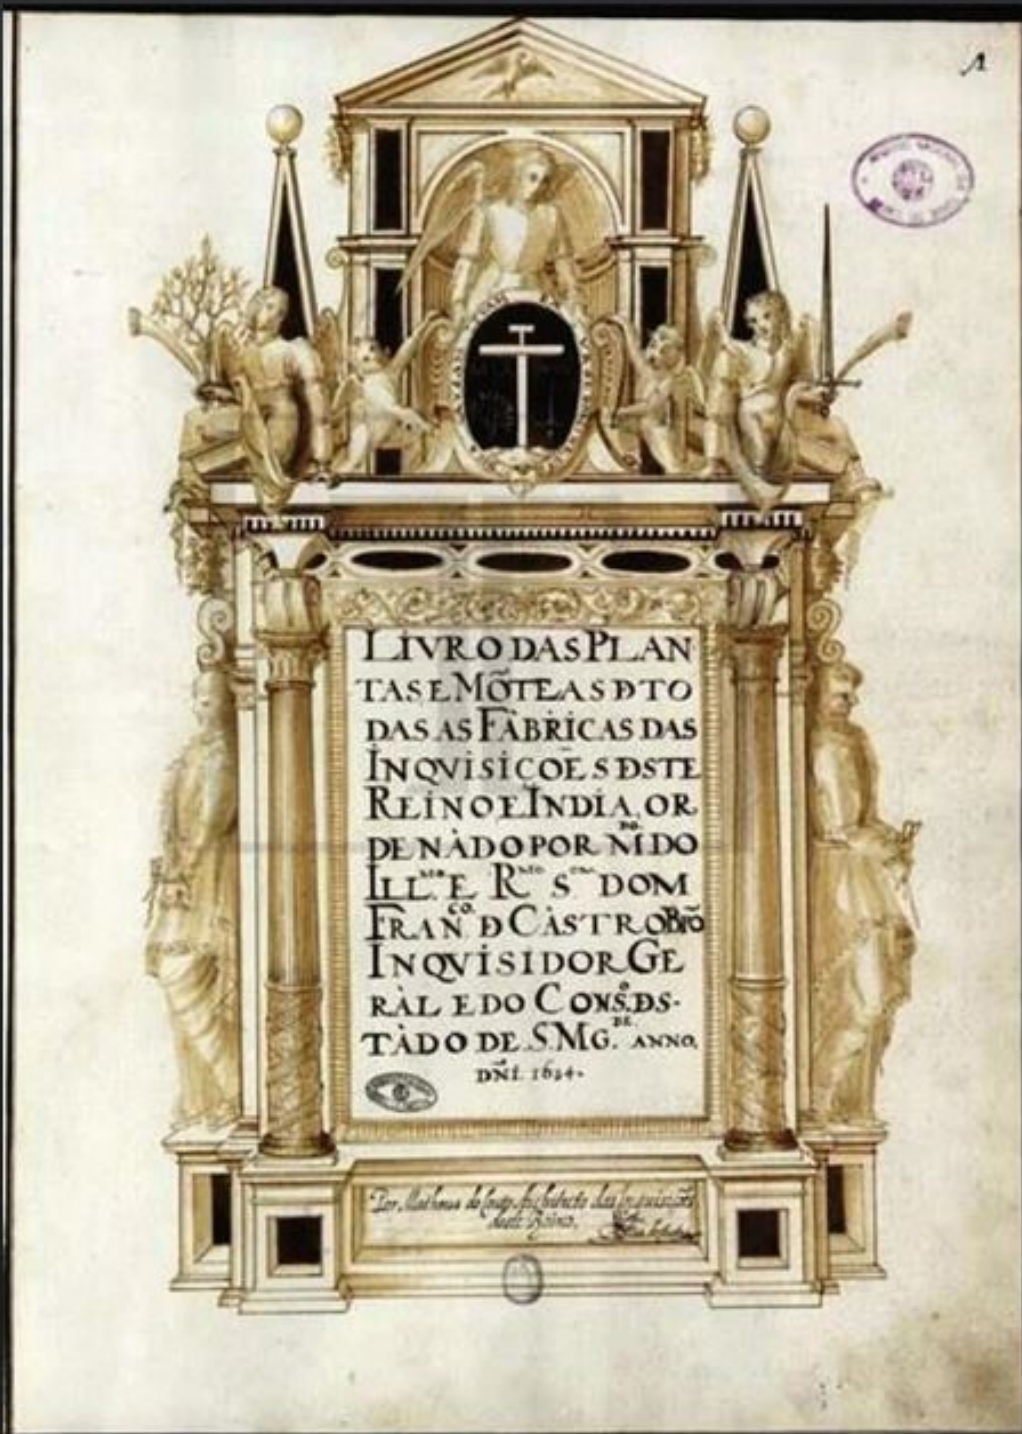 1
LIVRO DAS PLAN
TAS E MÕTEAS Đ TO
DAS AS FÀBRICAS DAS
INQVISIÇOẼS ĐSTE
REINO E ĨNDIA, OR
DENÀDO POR M.DO DO
ILL.MO E R.MO S.OR DOM
FRAN.CO Đ CÀSTRO BPÕ
INQVISIDOR GE
RÀL E DO CONS.O ĐS-
TÀDO DE S. MG.DE ANNO,
DÑI. 1634.
Por Matheus do Couto Architecto das Inquisições
deste Reino.